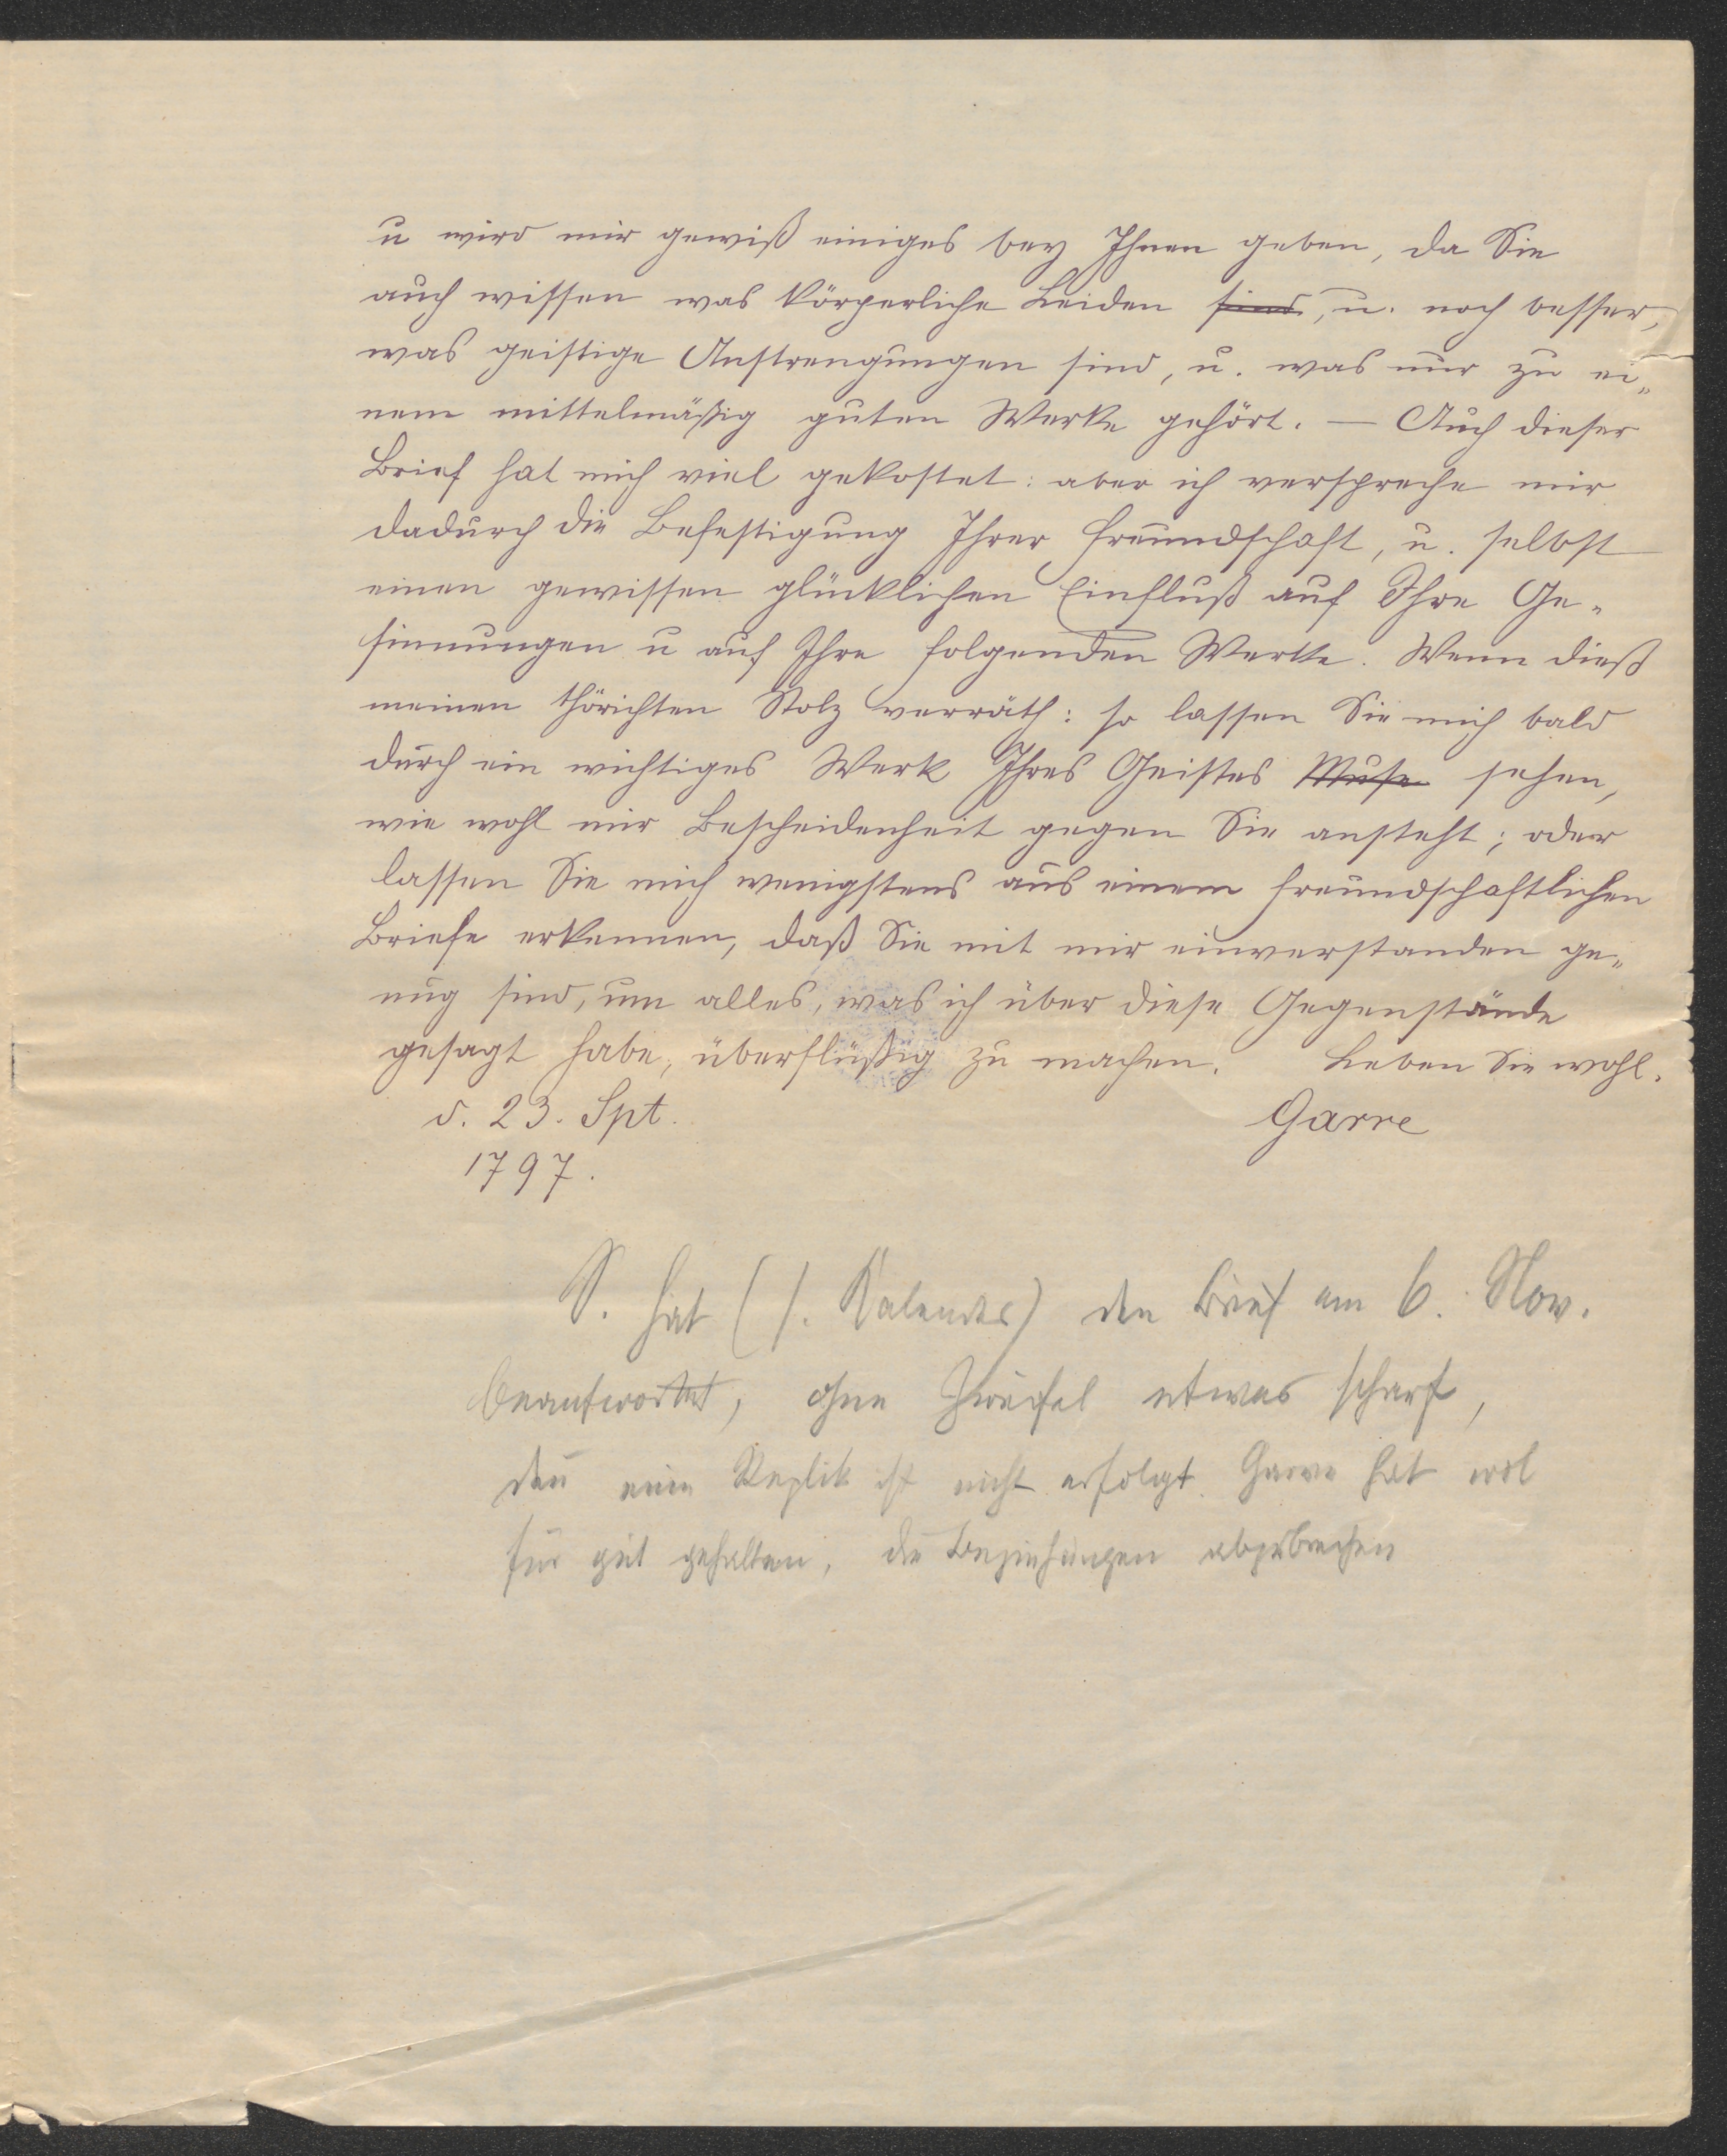 u wird mir gewiß einiges bey Ihnen geben, da Sie
auch wissen was körperliche Leiden sind, u. noch besser,
was geistige Anstrengungen sind, u. was nur zu ei„
nem mittelmäßig guten Werke gehört. — Auch dieser
Brief hat mich viel gekostet: aber ich verspreche mir
dadurch die Befestigung Ihrer Freundschaft, u. selbst
einen gewissen glücklichen Einfluß auf Ihre Ge„
sinnungen u auf Ihre folgenden Werke. Wenn dieß
meinen thörichten Stolz verräth: so lassen Sie mich bald
durch ein wichtiges Werk Ihres Geistes Muse sehen,
wie wohl mir Bescheidenheit gegen Sie ansteht; oder
lassen Sie mich wenigstens aus einem freundschaftlichen
Briefe erkennen, daß Sie mit mir einverstanden ge„
nug sind, um alles, was ich über diese Gegenstände
gesagt habe, überflüßig zu machen. Leben Sie wohl.
d. 23. Spt. Garve
1797.
S. hat (s. Kalender) den Brief am 6. Nov.
beantwortet, ohne Zweifel etwas scharf,
den̄ eine Replik ist nicht erfolgt. Garve hat wol
für gut gehalten, die Beziehungen abzubrechen